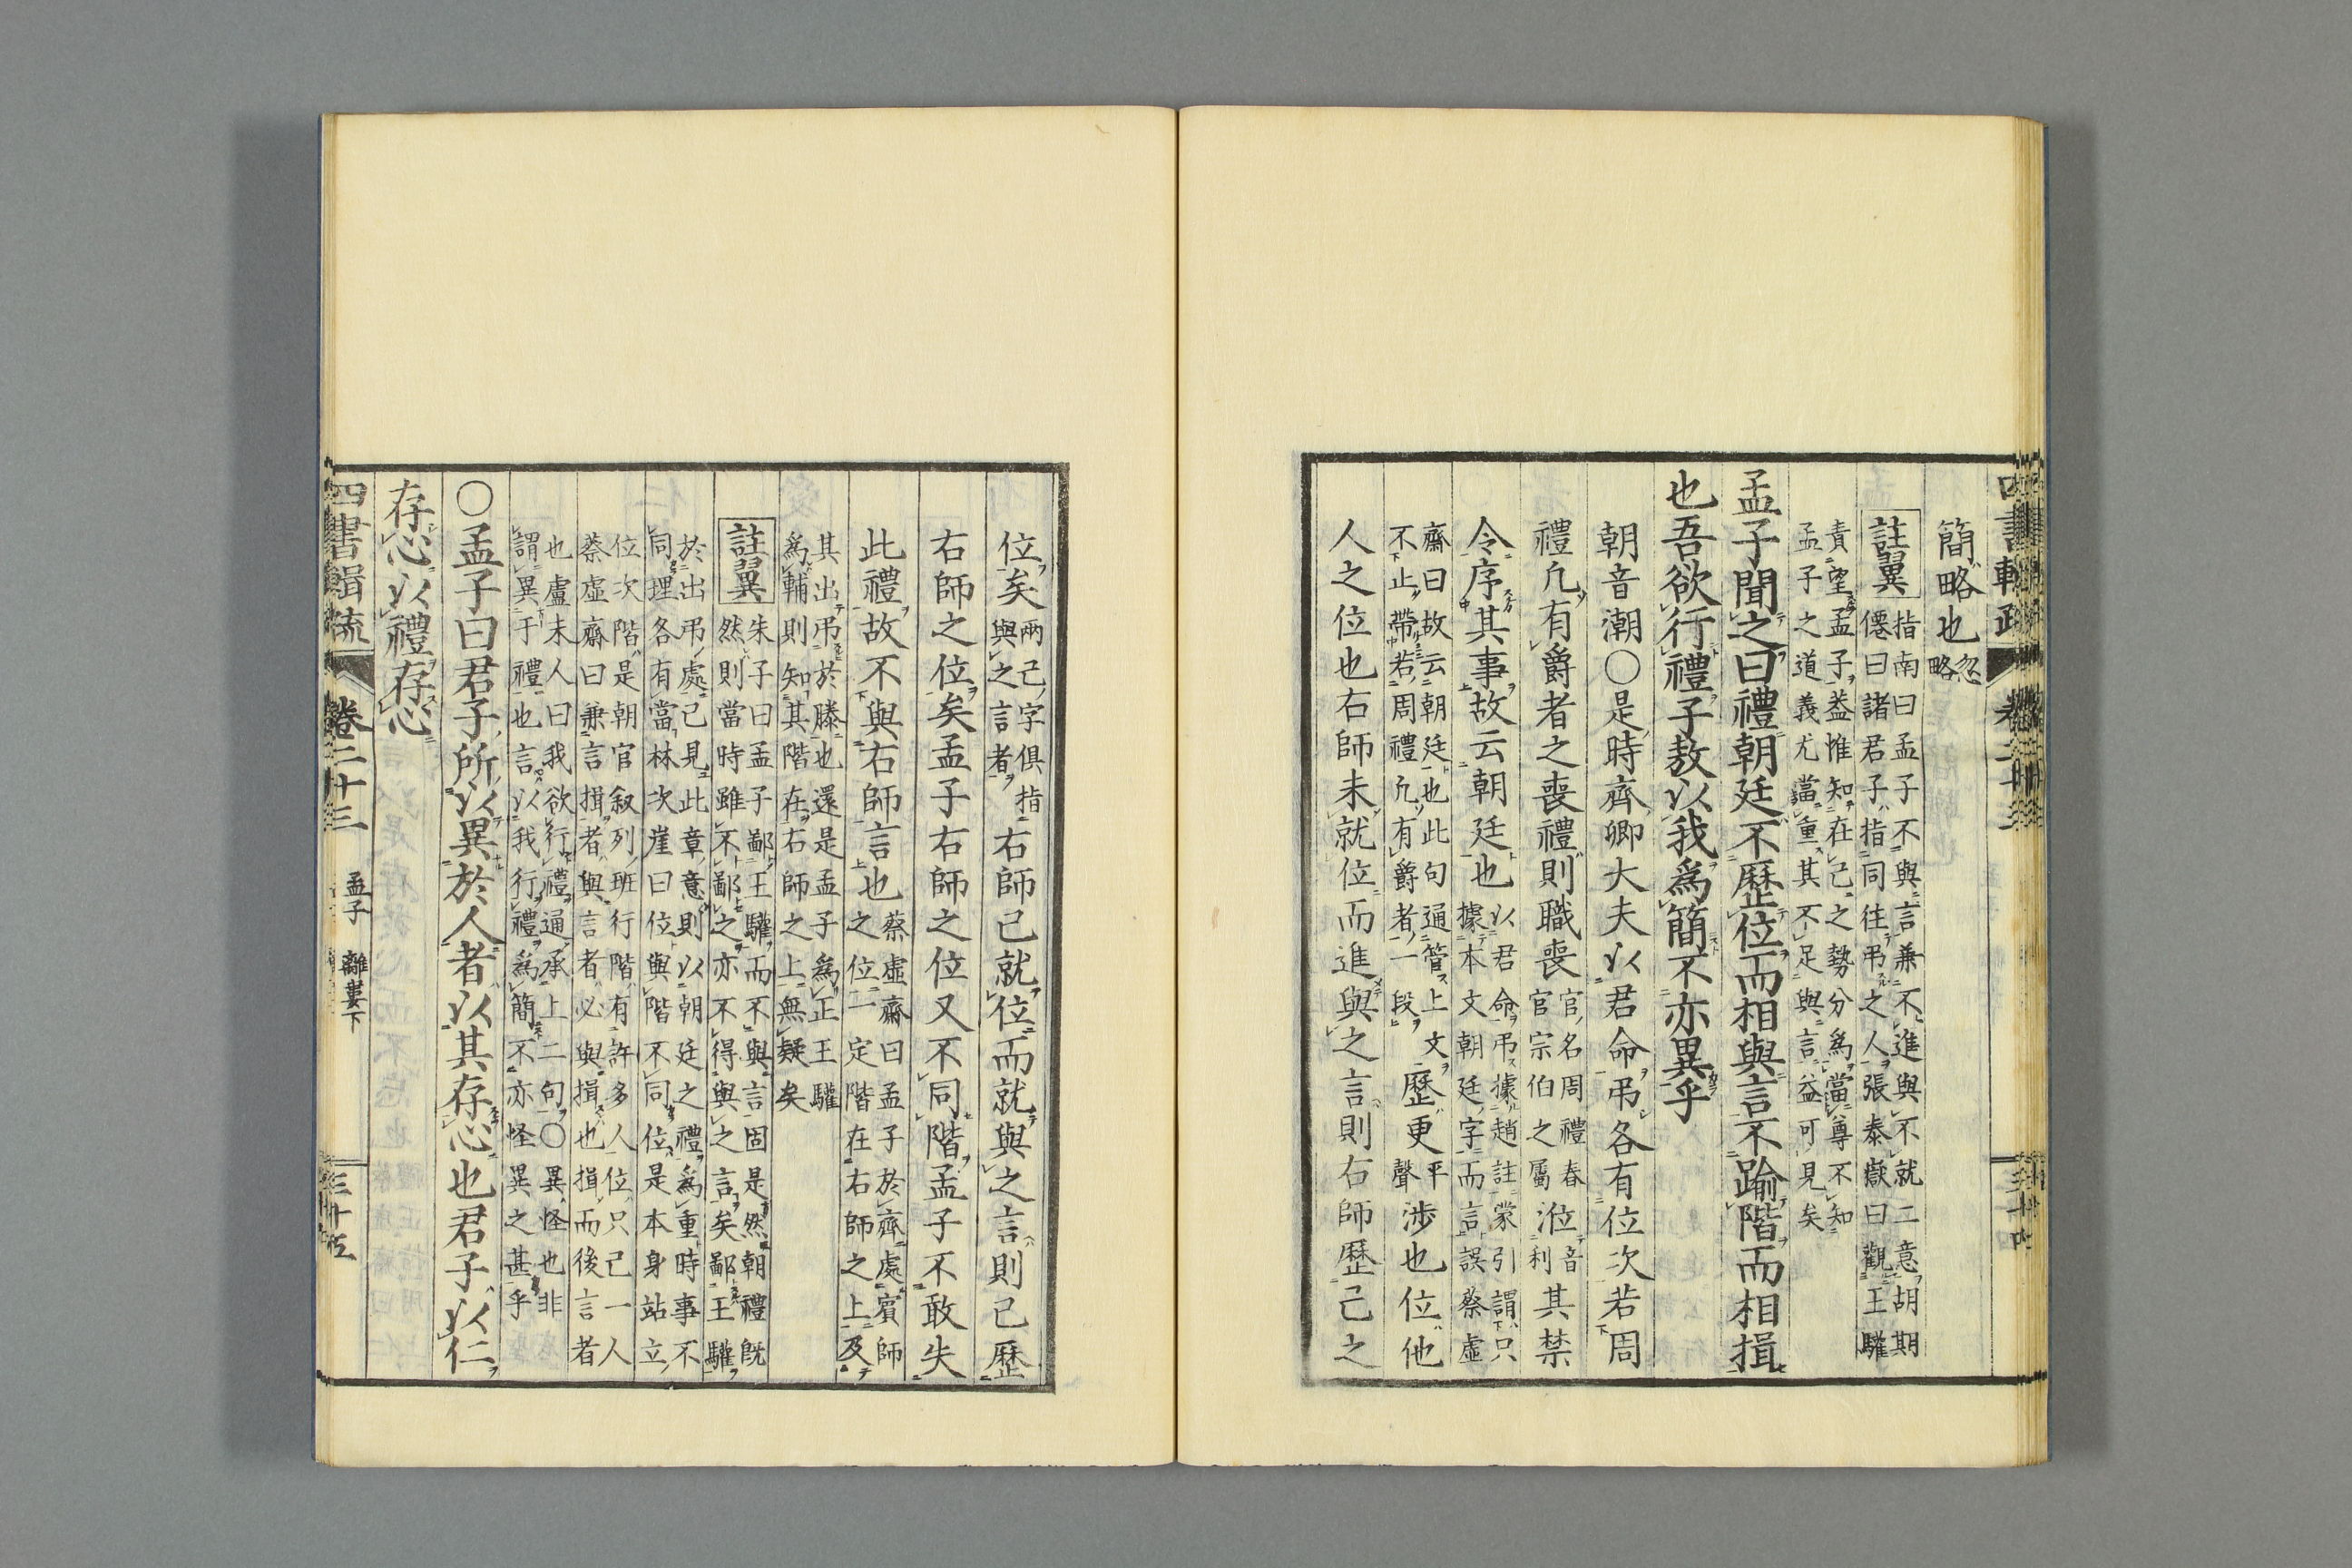 簡略也忽略
註翼指南曰孟子不與言兼不進與不就二意胡期
僊曰諸君子指同往弔之人張泰嶽曰觀王驩
責望孟子葢惟知在己之勢分爲當尊不知
孟子之道義尤當重其不足與言益可見矣
孟子聞之曰禮朝廷不歷位而相與言不踰階而相揖
也吾欲行禮子敖以我爲簡不亦異乎
朝音潮○是時齊卿大夫以君命弔各有位次若周
禮凢有爵者之喪禮則職喪官名周禮春官宗伯之屬涖音利其禁
令序其事故云朝廷也以君命弔據趙註蒙引謂只據本文朝廷字而言誤蔡虛
齋曰故云朝廷也此句通管上文不止帶若周禮凢有爵者一段歷更平聲涉也位他
人之位也右師未就位而進與之言則右師歷己之
位矣兩己字俱指與之言者右師已就位而就與之言則己歷
右師之位矣孟子右師之位又不同階孟子不敢失
此禮故不與右師言也蔡虛齋曰孟子於齊處賓師之位一定階在右師之上及
其出弔於滕也還是孟子爲正王驩
爲輔則知其階在右師之上無疑矣
註翼朱子曰孟子鄙王驩而不與言固是然朝禮旣
然則當時雖不鄙之亦不得與之言矣鄙王驩
於出弔處已見此章意則以朝廷之禮爲重時事不
同理各有當林次崖曰位與階不同位是本身站立
位次階是朝官叙列班行階有許多人位只己一人
蔡虛齋曰兼言揖者與言者必與揖也揖而後言者
也盧未人曰我欲行禮通承上二句○異怪也非
謂異于禮也言以我行禮爲簡不亦怪異之甚乎
○孟子曰君子所以異於人者以其存心也君子以仁
存心以禮存心
四書輯疏 卷二十三 孟子 離婁下 三十五